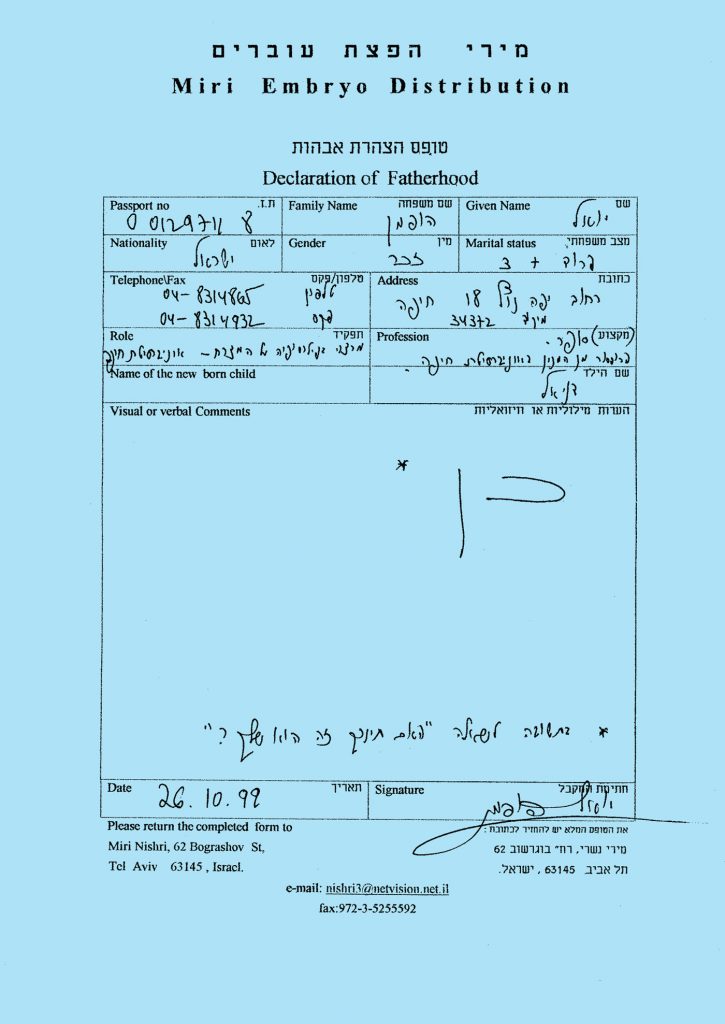 מירי הפצת עוברים
Miri Embryo Distribution
טופס הצהרת אבהות
Declaration of Fatherhood
Passport no ת.ז. Family Name שם משפחה Given Name שם
הופמן יואל
Nationality לאום Gender מין Marital status מצב משפחתי
ישראל זכר 3 +
Telephone\Fax טלפון/פקס Address כתובת
04-8314865 טלפון רחוב יפה נוף 18 חיפה
04-8314932 פקס מיקוד 34372
Role תפקיד Profession (מקצוע) סופר.
אוניברסיטת חיפה באוניברסיטת חיפה.
Name of the new born child שם הילד
דניאל
Visual or verbal Comments הערות מילוליות או חיזואליות
* כן
* בתשובה לשאלה "האם תינוק זה הוא שלך?"
Date תאריך Signature חתימת המקבל
26.10.99 יואל הופמן
Please return the completed form to את הטופס המלא יש להחזיר לכתובת:
Miri Nishri, 62 Bograshov St, מירי נשרי, רח" בוגרשוב 62
Tel Aviv 63145 , Israel. תל אביב 63145 , ישראל.
e-mail: nishri3@netvision.net.il
fax:972-3-5255592